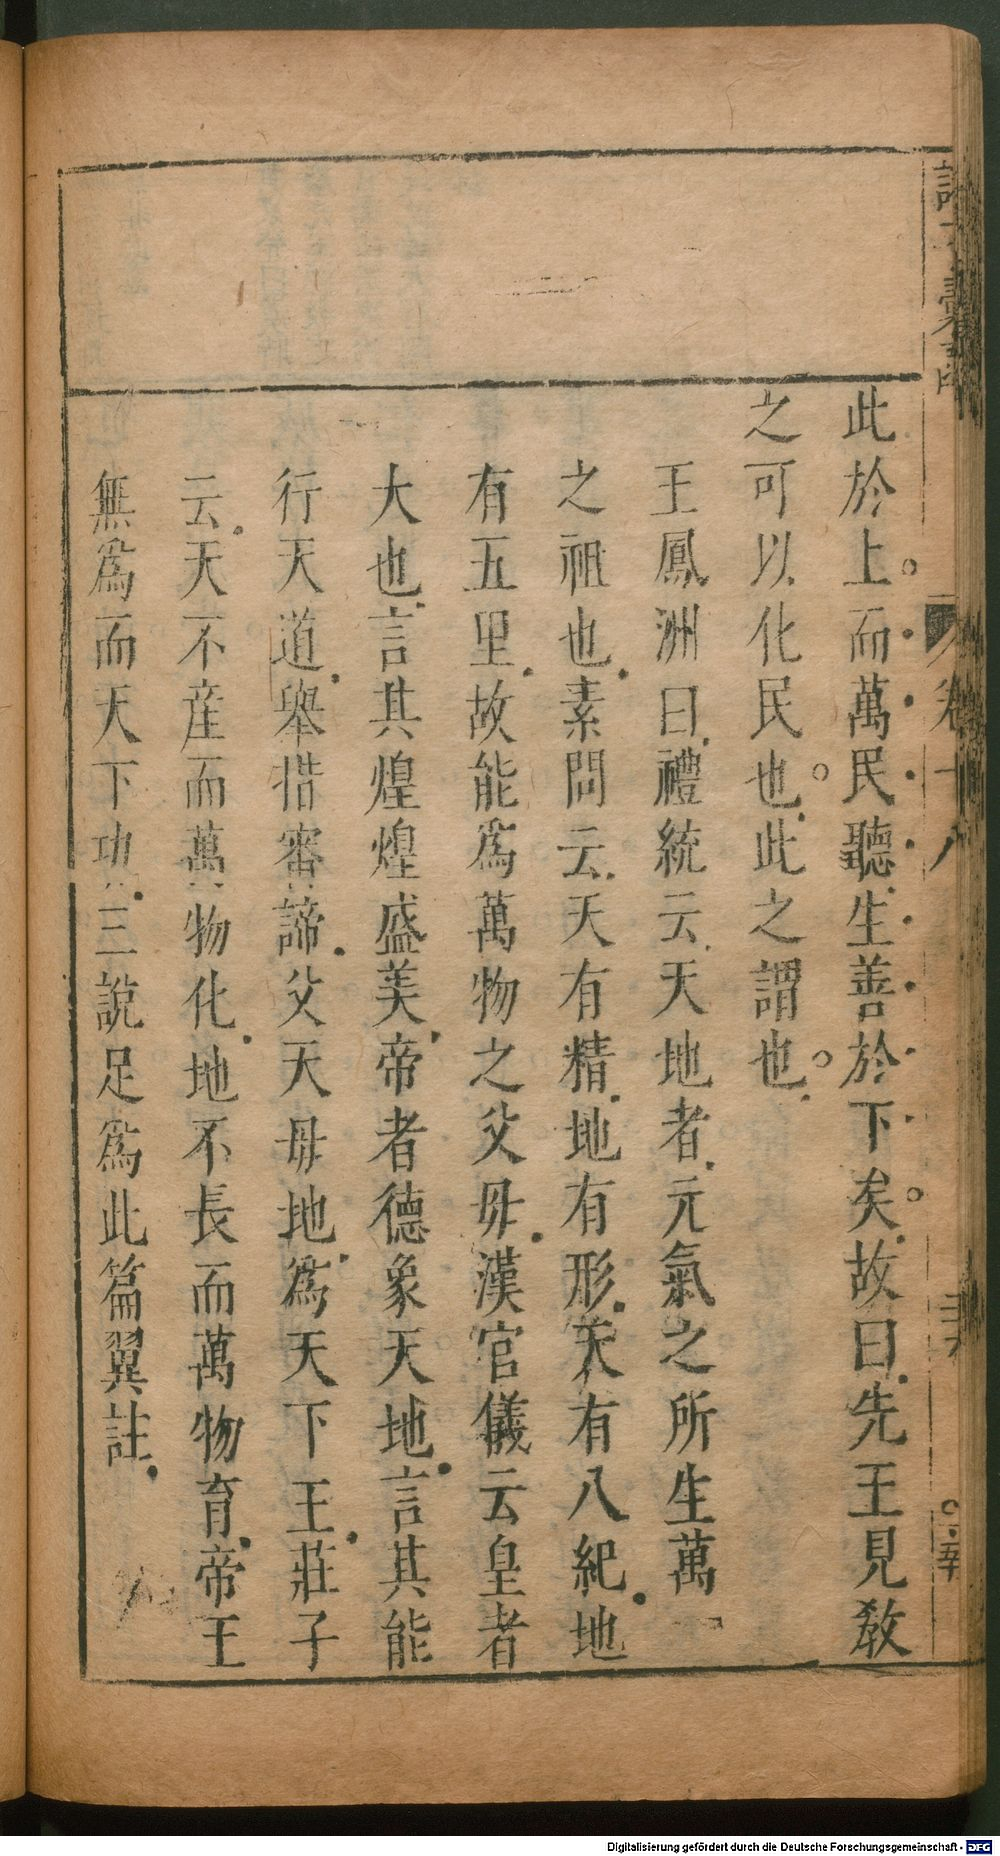 此於上而萬民聽生善於下矣故曰先王見教
之可以化民也此之謂也
王鳳洲曰禮統云天地者元氣之所生萬
之祖也素問云天有精地有形天有八紀地
有五里故能爲萬物之父母漢官儀云皇者
大也言其煌煌盛美帝者德象天地言其能
行天道舉措審諦父天母地爲天下王莊子
云天不產而萬物化地不長而萬物育帝王
無爲而天下功三說足爲此篇翼註
卷十八
Digitalisierung gefördert durch die Deutsche Forschungsgemeinschaft - DFG